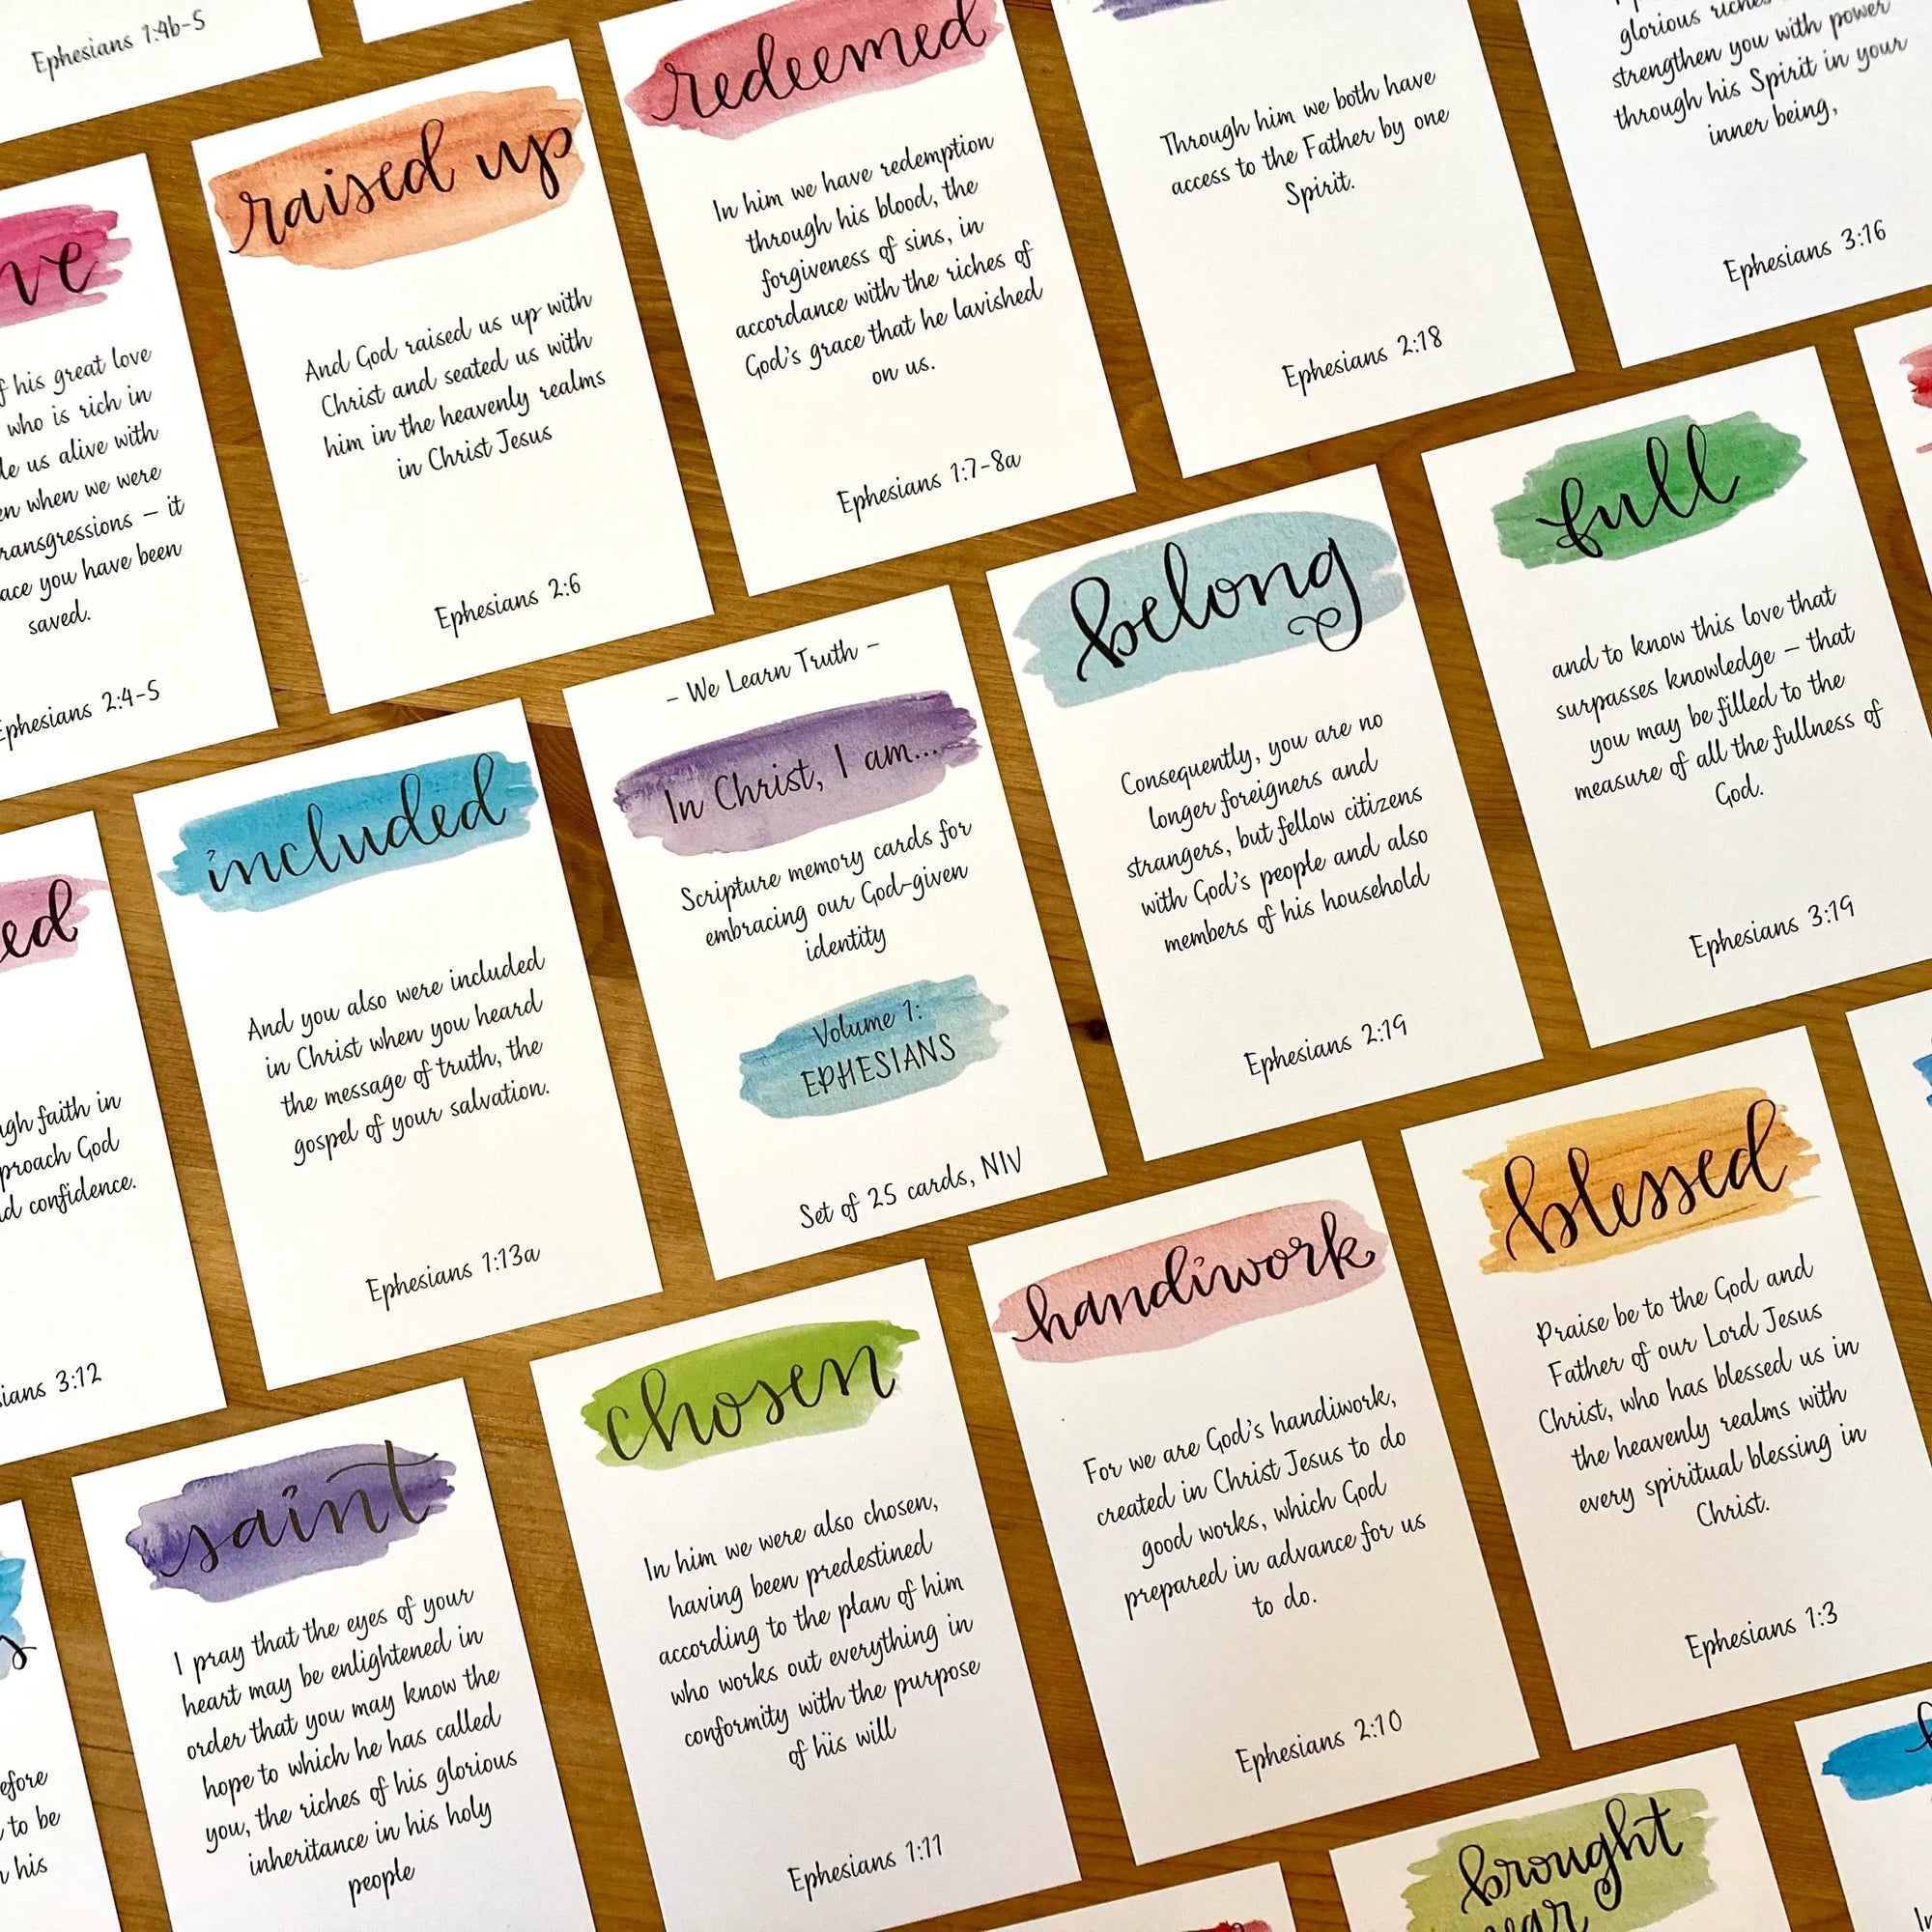 Ephesians 1:4b-5
raised up
And God raised us up with
Christ and seated us with
him in the heavenly realms
in Christ Jesus
Ephesians 2:6
redeemed
In him we have redemption
through his blood, the
forgiveness of sins, in
accordance with the riches of
God's grace that he lavished
on us.
Ephesians 1:7-8a
Through him we both have
access to the Father by one
Spirit.
Ephesians 2:18
glorious riches
strengthen you with power
through his Spirit in your
inner being,
Ephesians 3:16
his great love
who is rich in
us alive with
when we were
transgressions – it
you have been
saved.
Ephesians 2:4-5
included
And you also were included
in Christ when you heard
the message of truth, the
gospel of your salvation.
Ephesians 1:13a
– We Learn Truth –
In Christ, I am...
Scripture memory cards for
embracing our God-given
identity
Volume 1:
EPHESIANS
Set of 25 cards, NIV
belong
Consequently, you are no
longer foreigners and
strangers, but fellow citizens
with God's people and also
members of his household
Ephesians 2:19
full
and to know this love that
surpasses knowledge – that
you may be filled to the
measure of all the fullness of
God.
Ephesians 3:19
faith in
God
confidence.
3:12
saint
I pray that the eyes of your
heart may be enlightened in
order that you may know the
hope to which he has called
you, the riches of his glorious
inheritance in his holy
people
chosen
In him we were also chosen,
having been predestined
according to the plan of him
who works out everything in
conformity with the purpose
of his will
Ephesians 1:11
handiwork
For we are God's handiwork,
created in Christ Jesus to do
good works, which God
prepared in advance for us
to do.
Ephesians 2:10
blessed
Praise be to the God and
Father of our Lord Jesus
Christ, who has blessed us in
the heavenly realms with
every spiritual blessing in
Christ.
Ephesians 1:3
to be
his
brought